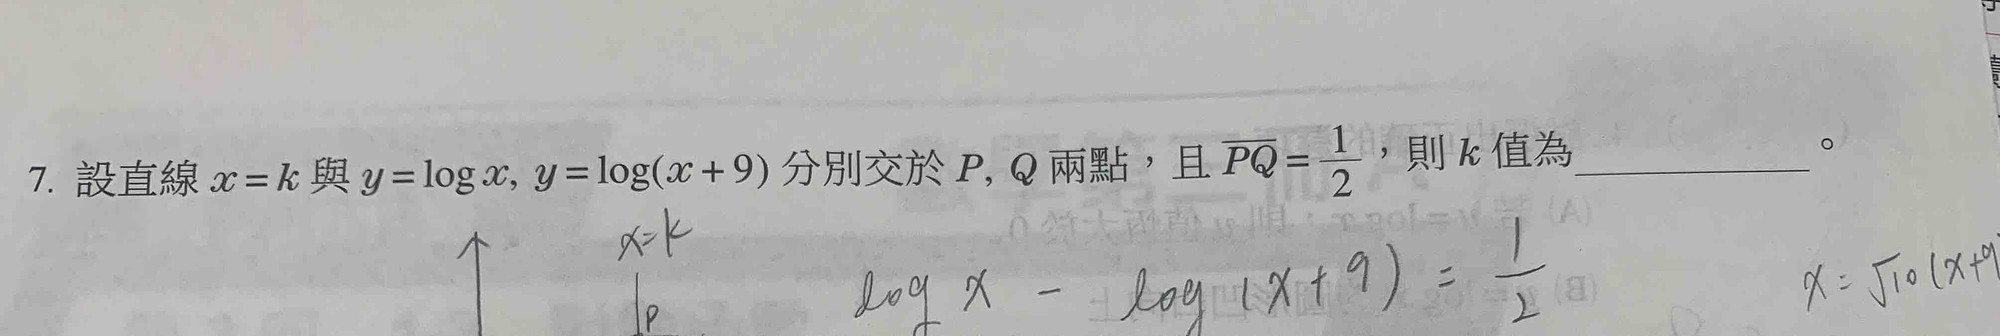 7. 設直線 x=k 與 y=log x, y=log(x+9) 分別交於 P, Q 兩點，且 PQ̅ = 1/2，則 k 值為____________。
x=k
log x - log(x+9) = 1/2
x=√10(x+9
P